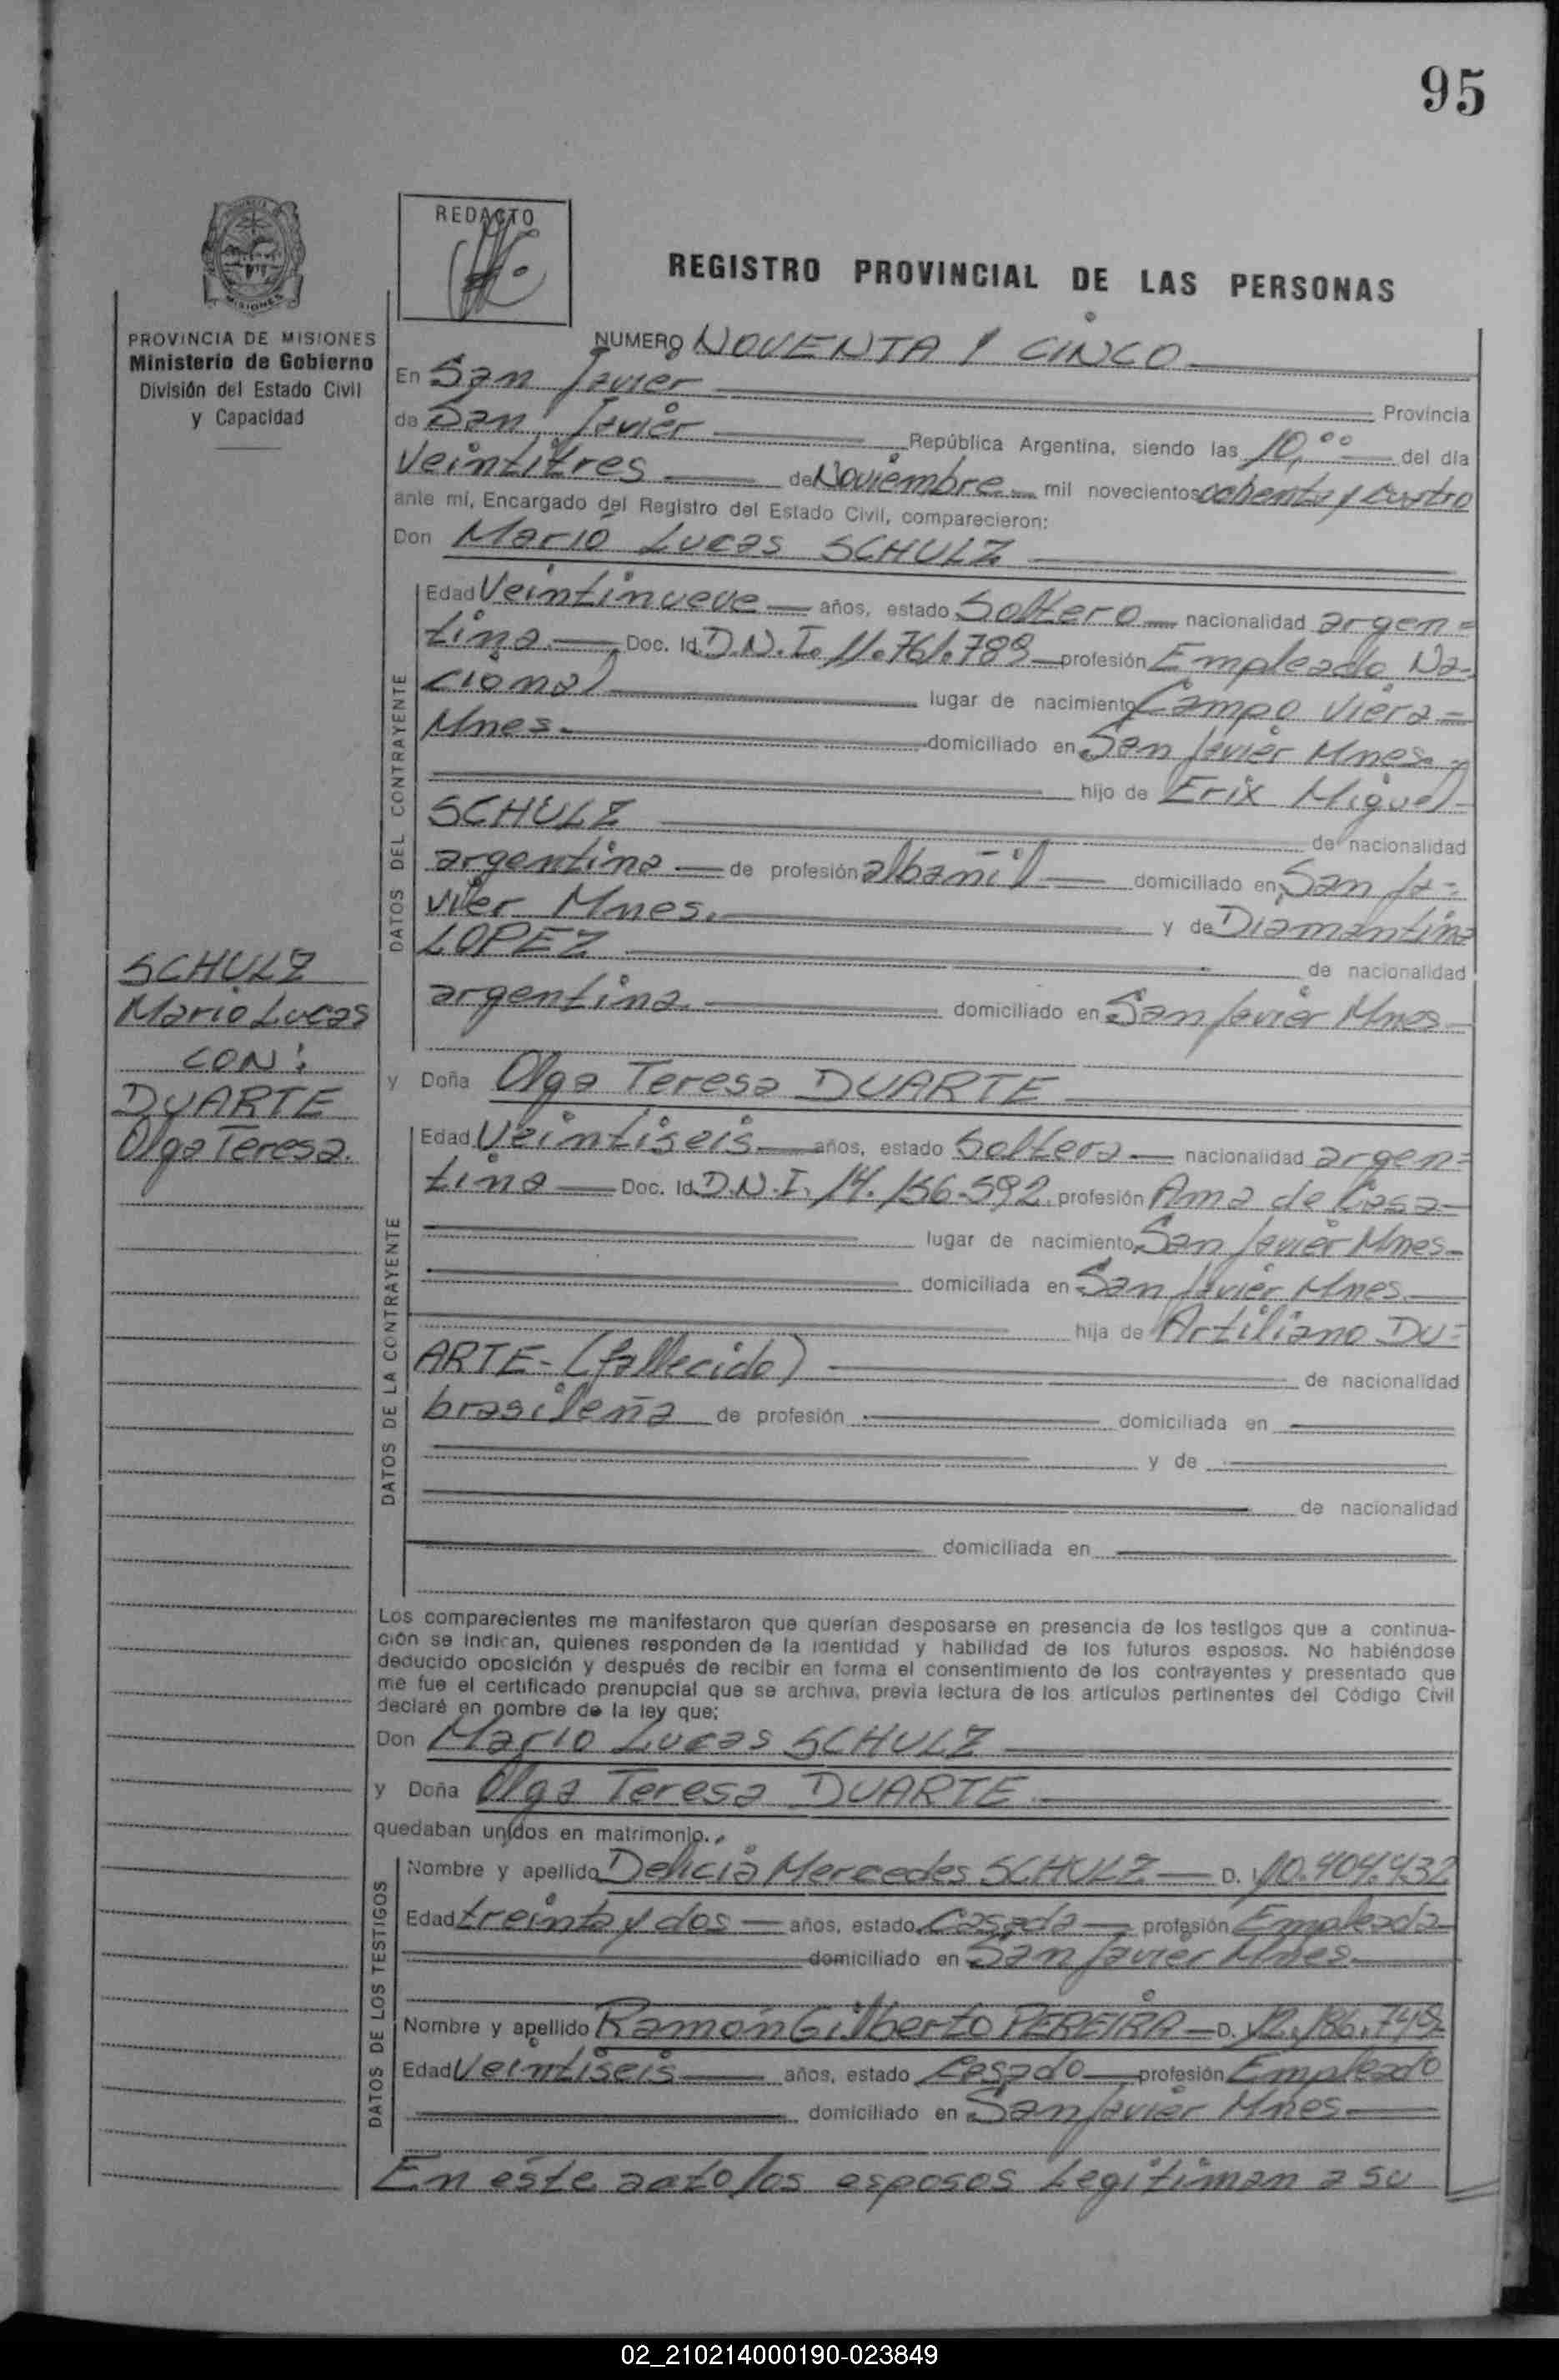 95
REDACTO
REGISTRO PROVINCIAL DE LAS PERSONAS
MISIONES
PROVINCIA DE MISIONES
Ministerio de Gobierno
División del Estado Civil
y Capacidad
NUMERO NOVENTA Y CINCO
En San Javier
Provincia
de San Javier República Argentina, siendo las 10,00 del día
Veintitres de Noviembre mil novecientos ochenta y cuatro
ante mí, Encargado del Registro del Estado Civil, comparecieron:
Don Mario Lucas SCHULZ
DATOS DEL CONTRAYENTE
Edad Veintinueve años, estado Soltero nacionalidad argen=
tina Doc. Id. D.N.I. 11.761.789 profesión Empleado Na-
cional lugar de nacimiento Campo Viera=
Mnes. domiciliado en San Javier Mnes.
hijo de Erix Miguel
SCHULZ de nacionalidad
argentina de profesión albañil domiciliado en San Ja=
vier Mnes. y de Diamantina
LOPEZ de nacionalidad
argentina domiciliado en San Javier Mnes
SCHULZ
Mario Lucas
CON:
DUARTE
Olga Teresa.
y Doña Olga Teresa DUARTE
DATOS DE LA CONTRAYENTE
Edad Veintiseis años, estado Soltera nacionalidad argen=
tina Doc. Id. D.N.I. 14.156.592. profesión Ama de Casa
lugar de nacimiento San Javier Mnes
domiciliada en San Javier Mnes.
hija de Artiliano DU=
ARTE-(fallecido) de nacionalidad
brasileña de profesión domiciliada en
y de
de nacionalidad
domiciliada en
Los comparecientes me manifestaron que querían desposarse en presencia de los testigos que a continua-
ción se indican, quienes responden de la identidad y habilidad de los futuros esposos. No habiéndose
deducido oposición y después de recibir en forma el consentimiento de los contrayentes y presentado que
me fue el certificado prenupcial que se archiva, previa lectura de los artículos pertinentes del Código Civil
declaré en nombre de la ley que:
Don Mario Lucas SCHULZ
y Doña Olga Teresa DUARTE
quedaban unidos en matrimonio.
DATOS DE LOS TESTIGOS
Nombre y apellido Delicia Mercedes SCHULZ D. I. 10.404.432
Edad treinta y dos años, estado Casada profesión Empleada
domiciliado en San Javier Mnes.
Nombre y apellido Ramón Gilberto PEREIRA D. I. 12.186.749
Edad Veintiseis años, estado Casado profesión Empleado
domiciliado en San Javier Mnes
En este acto los esposos Legitiman a su
02_210214000190-023849